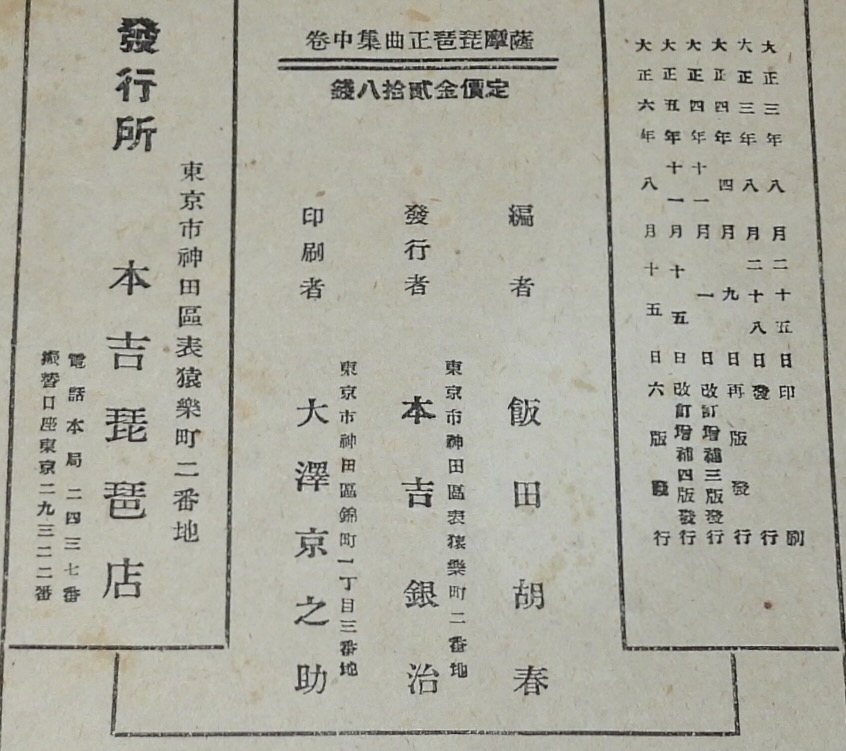 大正三年八月二十五日印刷
大正三年八月二十八日發行
大正四年四月九日再版發行
大正四年十一月一日改訂增補三版發行
大正五年十一月十五日改訂增補四版發行
大正六年八月十五日六版發行
薩摩琵琶正曲集中卷
定價金貳拾八錢
編者 飯田胡春
東京市神田區表猿樂町二番地
發行者 本吉銀治
東京市神田區錦町一丁目三番地
印刷者 大澤京之助
東京市神田區表猿樂町二番地
發行所 本吉琵琶店
電話本局二四三七番
振替口座東京二九三二二番